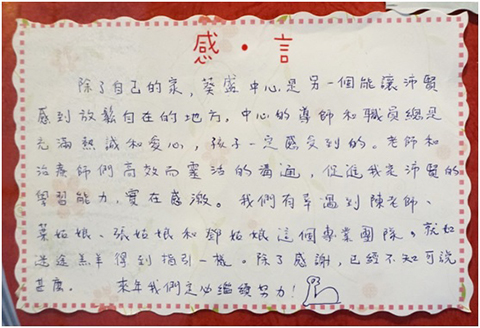 感·言
除了自己的家,葵盛中心是另一個能讓沛賢
感到放鬆自在的地方,中心的導師和職員總是
充滿熱誠和愛心,孩子一定感受到的。老師和
治療師們高效而靈活的溝通,促進我是沛賢的
學習能力,實在感激。我們有幸遇到陳老師、
葉姑娘、張姑娘和鄧姑娘這個專業團隊。就如
迷途羔羊得到指引一般。除了感謝,已經不知可說
甚麼。 來年我們定必繼續努力!